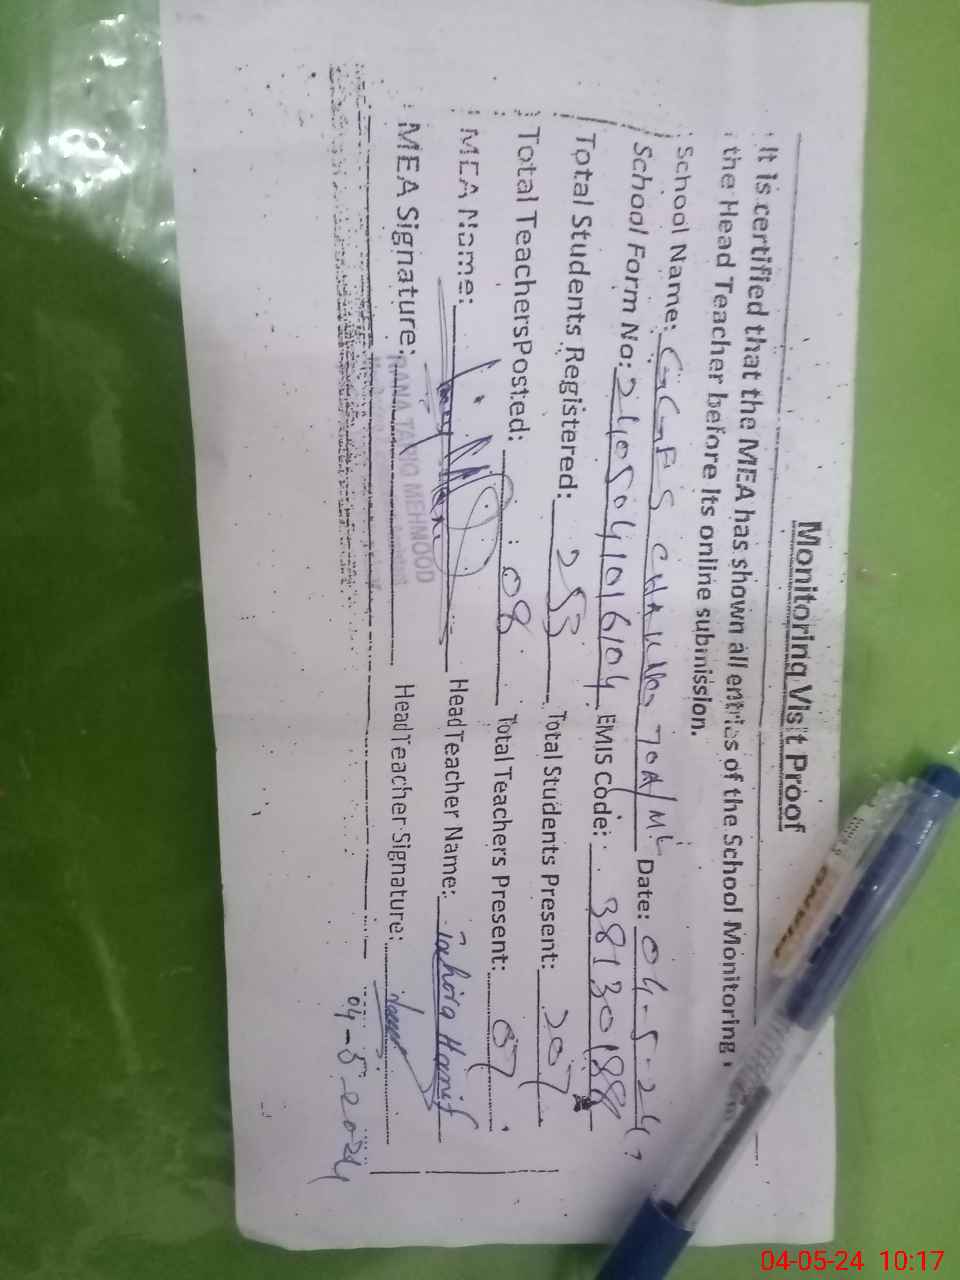 Monitoring Visit Proof
It is certified that the MEA has shown all entries of the School Monitoring
the Head Teacher before its online submission.
School Name: GGES CHAK No 70A/ML Date: 04-5-24
School Form No: 2405041016104 EMIS Code: 38130188
Total Students Registered: 255 Total Students Present: 207
Total TeachersPosted: 08 Total Teachers Present: 07
MEA Name: Head Teacher Name: Tahira Hanif
MEA Signature: Head Teacher Signature:
RANA TARIQ MEHMOOD
04-5-2024
ONYX
04-05-24 10:17